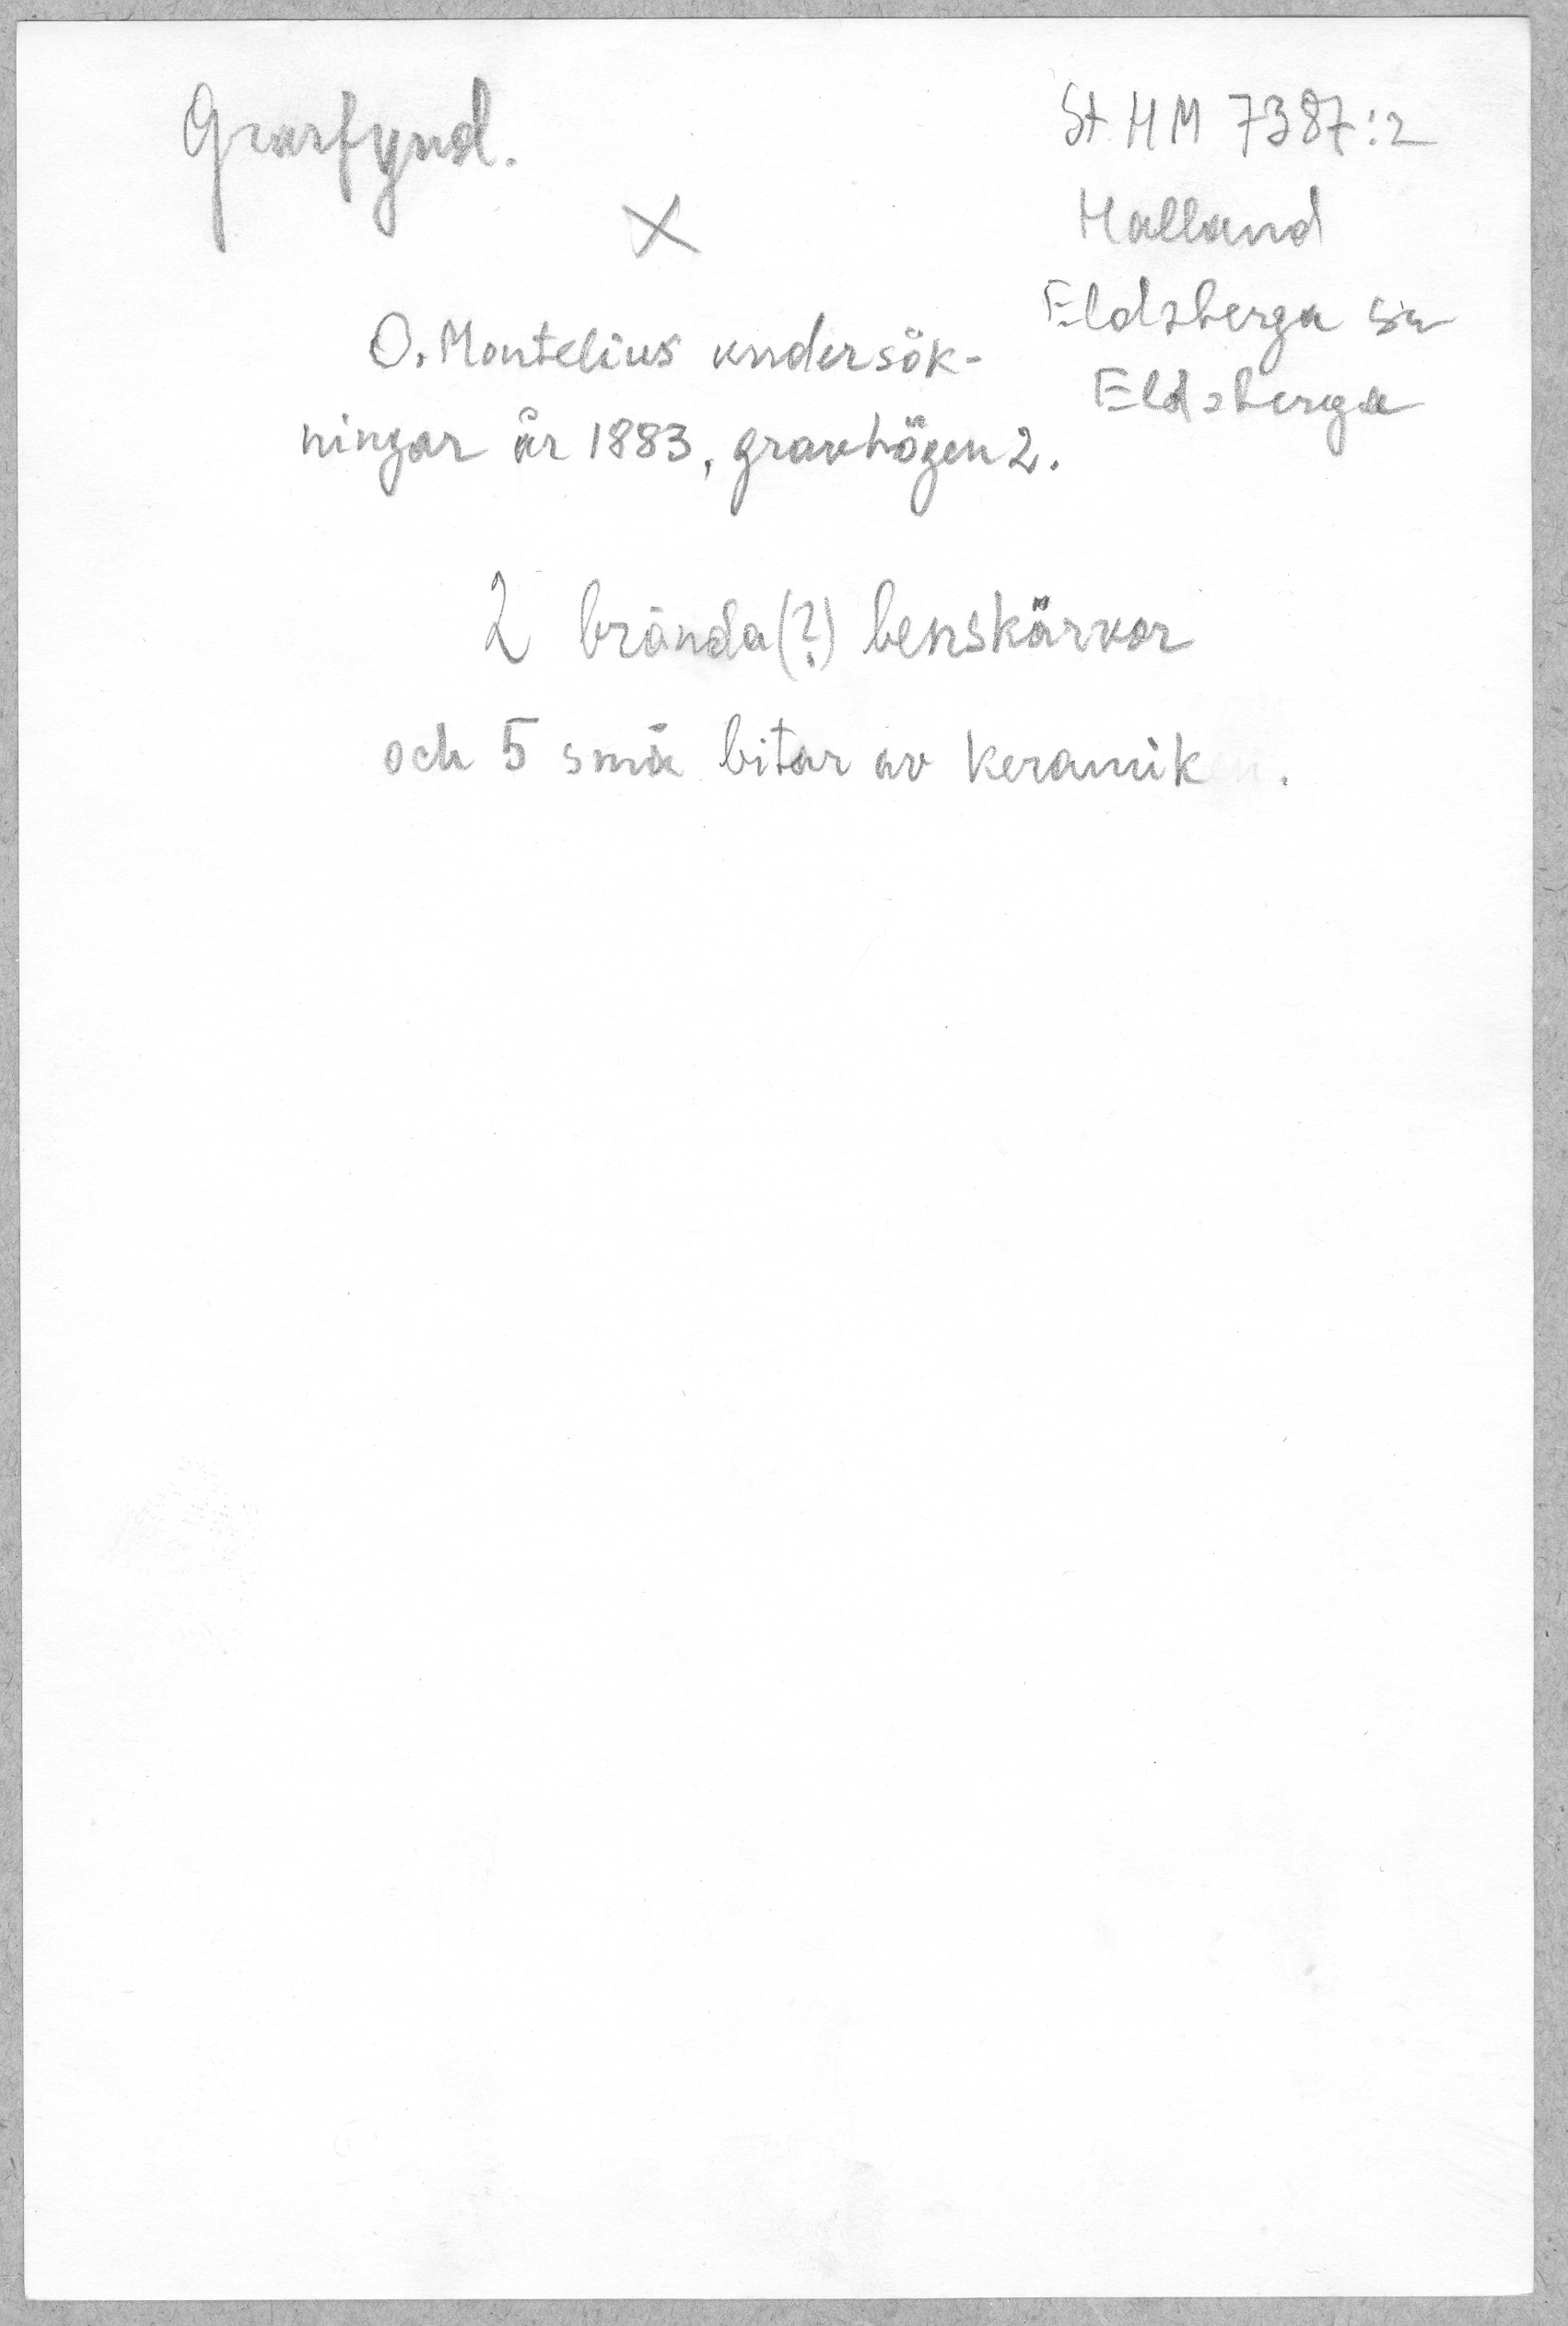 Gravfynd.
St. H M 7387:2
Halland
Eldsberga sn
Eldsberga
X
O. Montelius undersök-
ningar år 1883, gravhögen 2.
2 brända(?) benskärvor
och 5 små bitar av keramik .